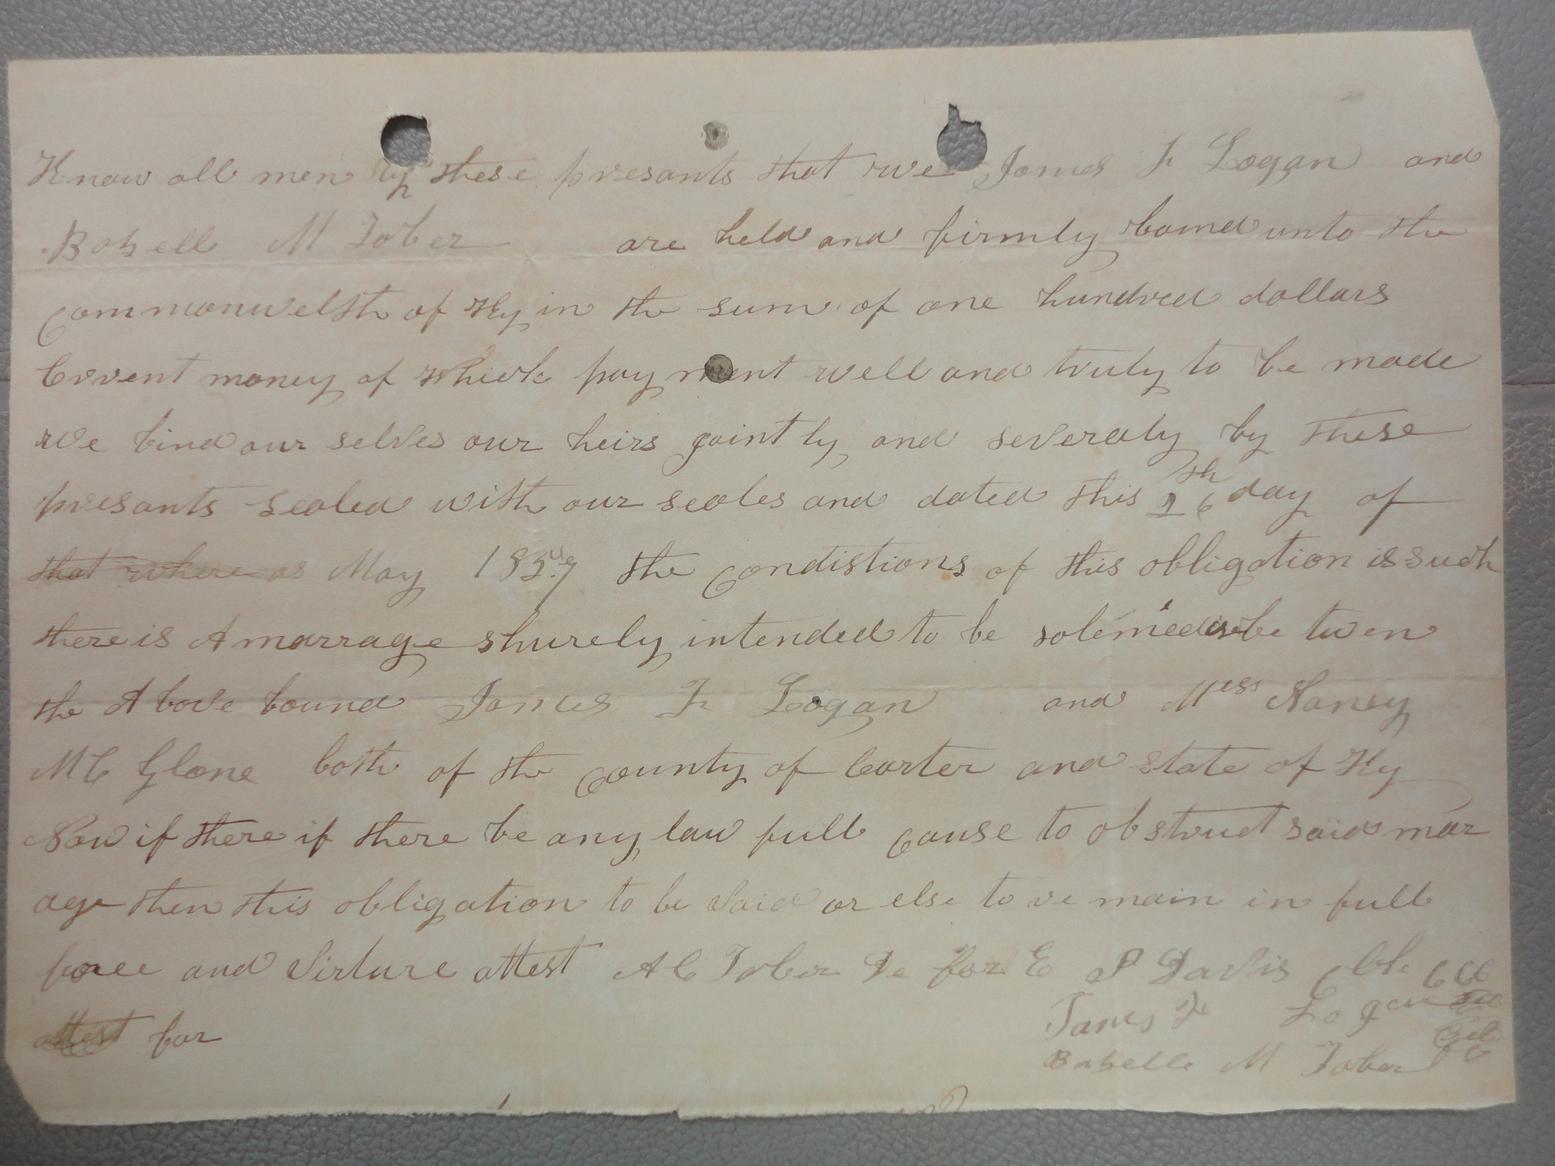 Know all men by these presants that we James F Logan and
Bobell M Tober are held and firmly bound unto the
Commonwelth of Ky in the sum of one hundred dollars
Corrent money of which payment well and truly to be made
we bind our selves our heirs jointly and severaly by these
presants sealed with our seales and dated this 26th day of
that where as May 1859 the condistions of this obligation is such
there is A marrage shurely intended to be solemed be twen
the Above bound James F Logan and Miss Nancy
MC Glone both of the county of Carter and state of Ky
Now if there if there be any law full cause to obstruct said mar
age then this obligation to be void or else to re main in full
force and virture attest A C Tober De for E P Davis Clk C C C
James F Logan
attest for
Babelle M Tober